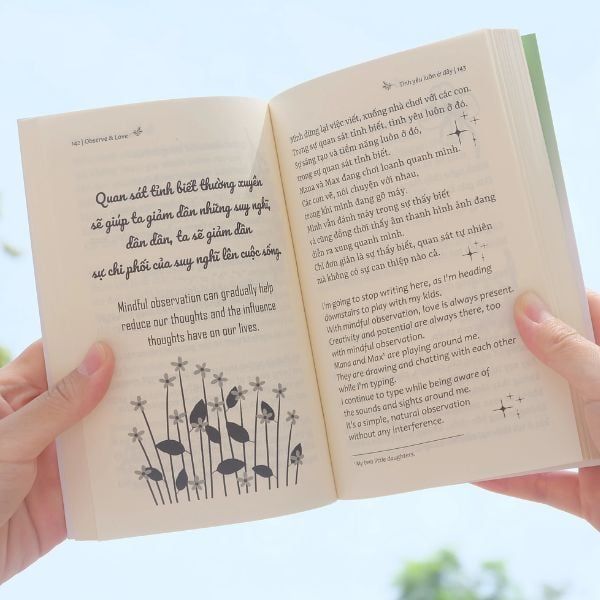 142 | Observe & Love
Quan sát tỉnh biết thường xuyên
sẽ giúp ta giảm dần những suy nghĩ,
dần dần, ta sẽ giảm dần
sự chi phối của suy nghĩ lên cuộc sống.
Mindful observation can gradually help
reduce our thoughts and the influence
thoughts have on our lives.
Tình yêu luôn ở đây | 143
Mình dừng lại việc viết, xuống nhà chơi với các con.
Trong sự quan sát tỉnh biết, tình yêu luôn ở đó,
Sự sáng tạo và tiềm năng luôn ở đó,
trong sự quan sát tỉnh biết.
Mana và Max đang chơi loanh quanh mình.
Các con vẽ, nói chuyện với nhau,
trong khi mình đang gõ máy.
Mình vẫn đánh máy trong sự thấy biết
và cũng đồng thời thấy âm thanh hình ảnh đang
diễn ra xung quanh mình.
Chỉ đơn giản là sự thấy biết, quan sát tự nhiên
mà không có sự can thiệp nào cả.
I'm going to stop writing here, as I'm heading
downstairs to play with my kids.
With mindful observation, love is always present.
Creativity and potential are always there, too
with mindful observation.
Mana and Max¹ are playing around me.
They are drawing and chatting with each other
while I'm typing.
I continue to type while being aware of
the sounds and sights around me.
It's a simple, natural observation
without any interference.
¹ My two little daughters.